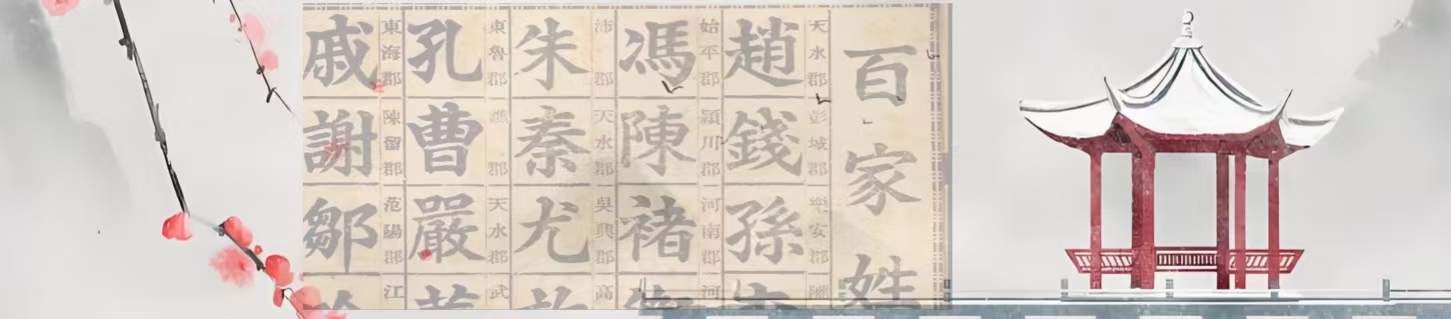 百家姓
天水郡 彭城郡 樂安郡
趙錢孫
始平郡 潁川郡 河南郡 河
馮陳褚
沛郡 天水郡 吳興郡 高
朱秦尤
東魯郡 譙郡 天水郡 武
孔曹嚴
東海郡 陳留郡 范陽郡 江
戚謝鄒